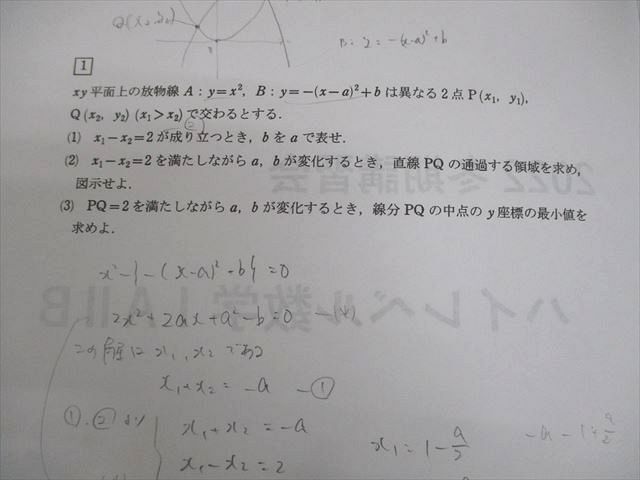 Q(x₂, y₂)
B: y = -(x-a)²+b
1
xy平面上の放物線 A：y=x², B：y=−(x−a)²+b は異なる2点 P(x₁, y₁),
Q(x₂, y₂) (x₁>x₂) で交わるとする．
②
(1) x₁−x₂=2 が成り立つとき，b を a で表せ．
(2) x₁−x₂=2 を満たしながら a，b が変化するとき，直線 PQ の通過する領域を求め，
図示せよ．
(3) PQ=2 を満たしながら a，b が変化するとき，線分 PQ の中点の y 座標の最小値を
求めよ．
2022 冬期講習会
ハイレベル数学ⅠAⅡB
x²-{-(x-a)²+b}=0
2x²+2ax+a²-b=0
この解は x₁, x₂ である
x₁+x₂ = -a -①
①,②より
x₁+x₂ = -a
x₁-x₂ = 2
x₁ = 1 - a/2
-a-1+a/2